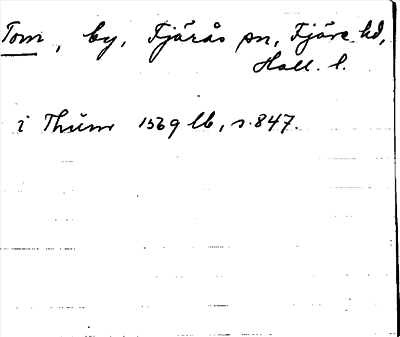 Tom, by, Fjärås sn, Fjäre hd,
Hall. l.
i Thům 1569 lb, s. 847.